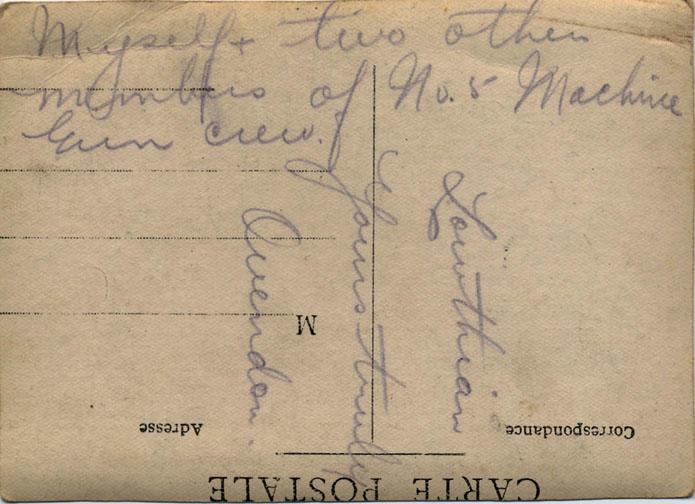 Myself + two other
members of No. 5 Machine
Gun crew.
Lowthian
Yours truly
Owendon.
Correspondance
Adresse
M
CARTE POSTALE